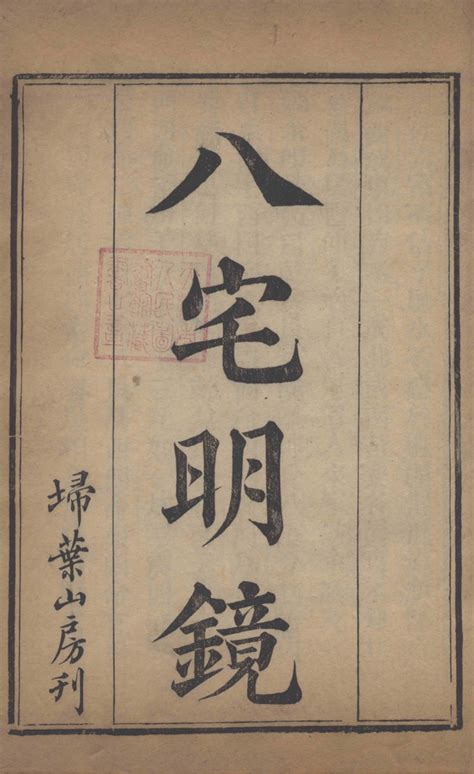 八宅明鏡
埽葉山房刊